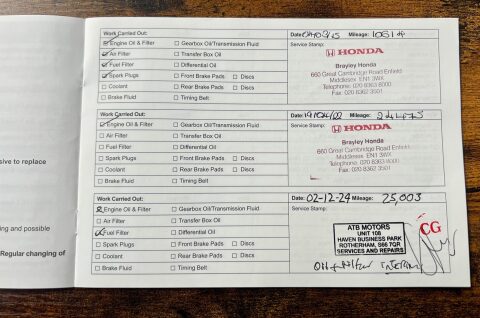 sive to replace
ing and possible
Regular changing of
Work Carried Out:
Engine Oil & Filter
Gearbox Oil/Transmission Fluid
Air Filter
Transfer Box Oil
Fuel Filter
Differential Oil
Spark Plugs
Front Brake Pads
Discs
Coolant
Rear Brake Pads
Discs
Brake Fluid
Timing Belt
Date:
Mileage:
Service Stamp:
HONDA
Brayley Honda
660 Great Cambridge Road Enfield
Middlesex EN1 3WX
Telephone: 020 8363 6000
Fax: 020 8362 3501
Work Carried Out:
Engine Oil & Filter
Gearbox Oil/Transmission Fluid
Air Filter
Transfer Box Oil
Fuel Filter
Differential Oil
Spark Plugs
Front Brake Pads
Discs
Coolant
Rear Brake Pads
Discs
Brake Fluid
Timing Belt
Date: 19/04/22 Mileage:
Service Stamp:
HONDA
Brayley Honda
660 Great Cambridge Road Enfield
Middlesex EN1 3WX
Telephone: 020 8363 6000
Fax: 020 8362 3501
Work Carried Out:
Engine Oil & Filter
Gearbox Oil/Transmission Fluid
Air Filter
Transfer Box Oil
Fuel Filter
Differential Oil
Spark Plugs
Front Brake Pads
Discs
Coolant
Rear Brake Pads
Discs
Brake Fluid
Timing Belt
Date: 02-12-24 Mileage: 25,003
Service Stamp:
ATB MOTORS
UNIT 108
HAVEN BUSINESS PARK
ROTHERHAM, S66 7QR
SERVICES AND REPAIRS
CG
INTERIM